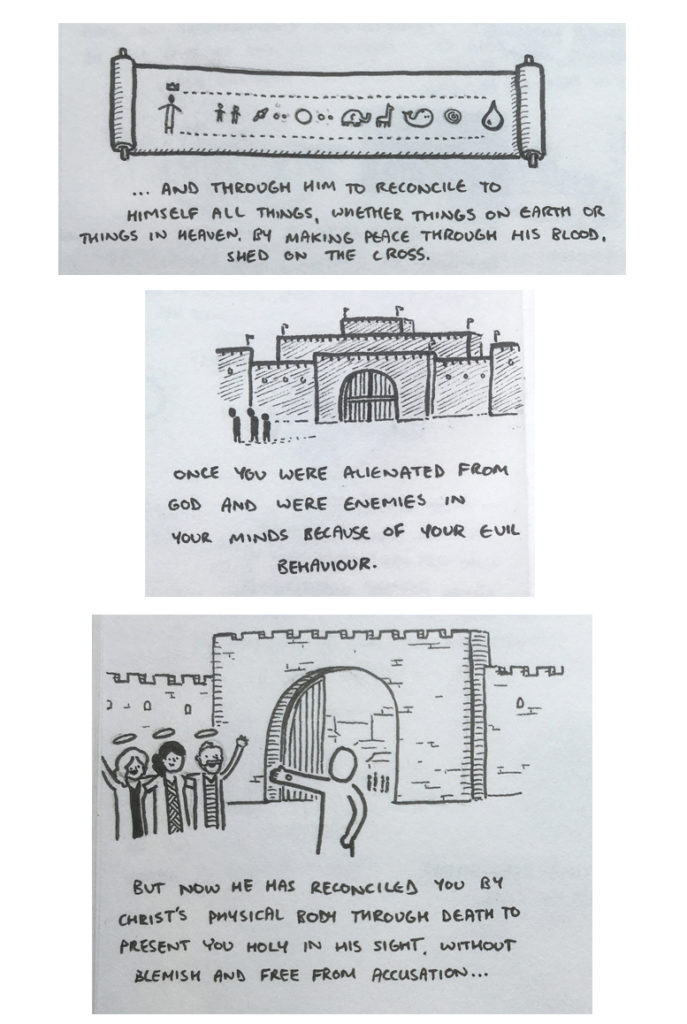 ... AND THROUGH HIM TO RECONCILE TO
HIMSELF ALL THINGS, WHETHER THINGS ON EARTH OR
THINGS IN HEAVEN. BY MAKING PEACE THROUGH HIS BLOOD,
SHED ON THE CROSS.
ONCE YOU WERE ALIENATED FROM
GOD AND WERE ENEMIES IN
YOUR MINDS BECAUSE OF YOUR EVIL
BEHAVIOUR.
BUT NOW HE HAS RECONCILED YOU BY
CHRIST'S PHYSICAL BODY THROUGH DEATH TO
PRESENT YOU HOLY IN HIS SIGHT, WITHOUT
BLEMISH AND FREE FROM ACCUSATION...